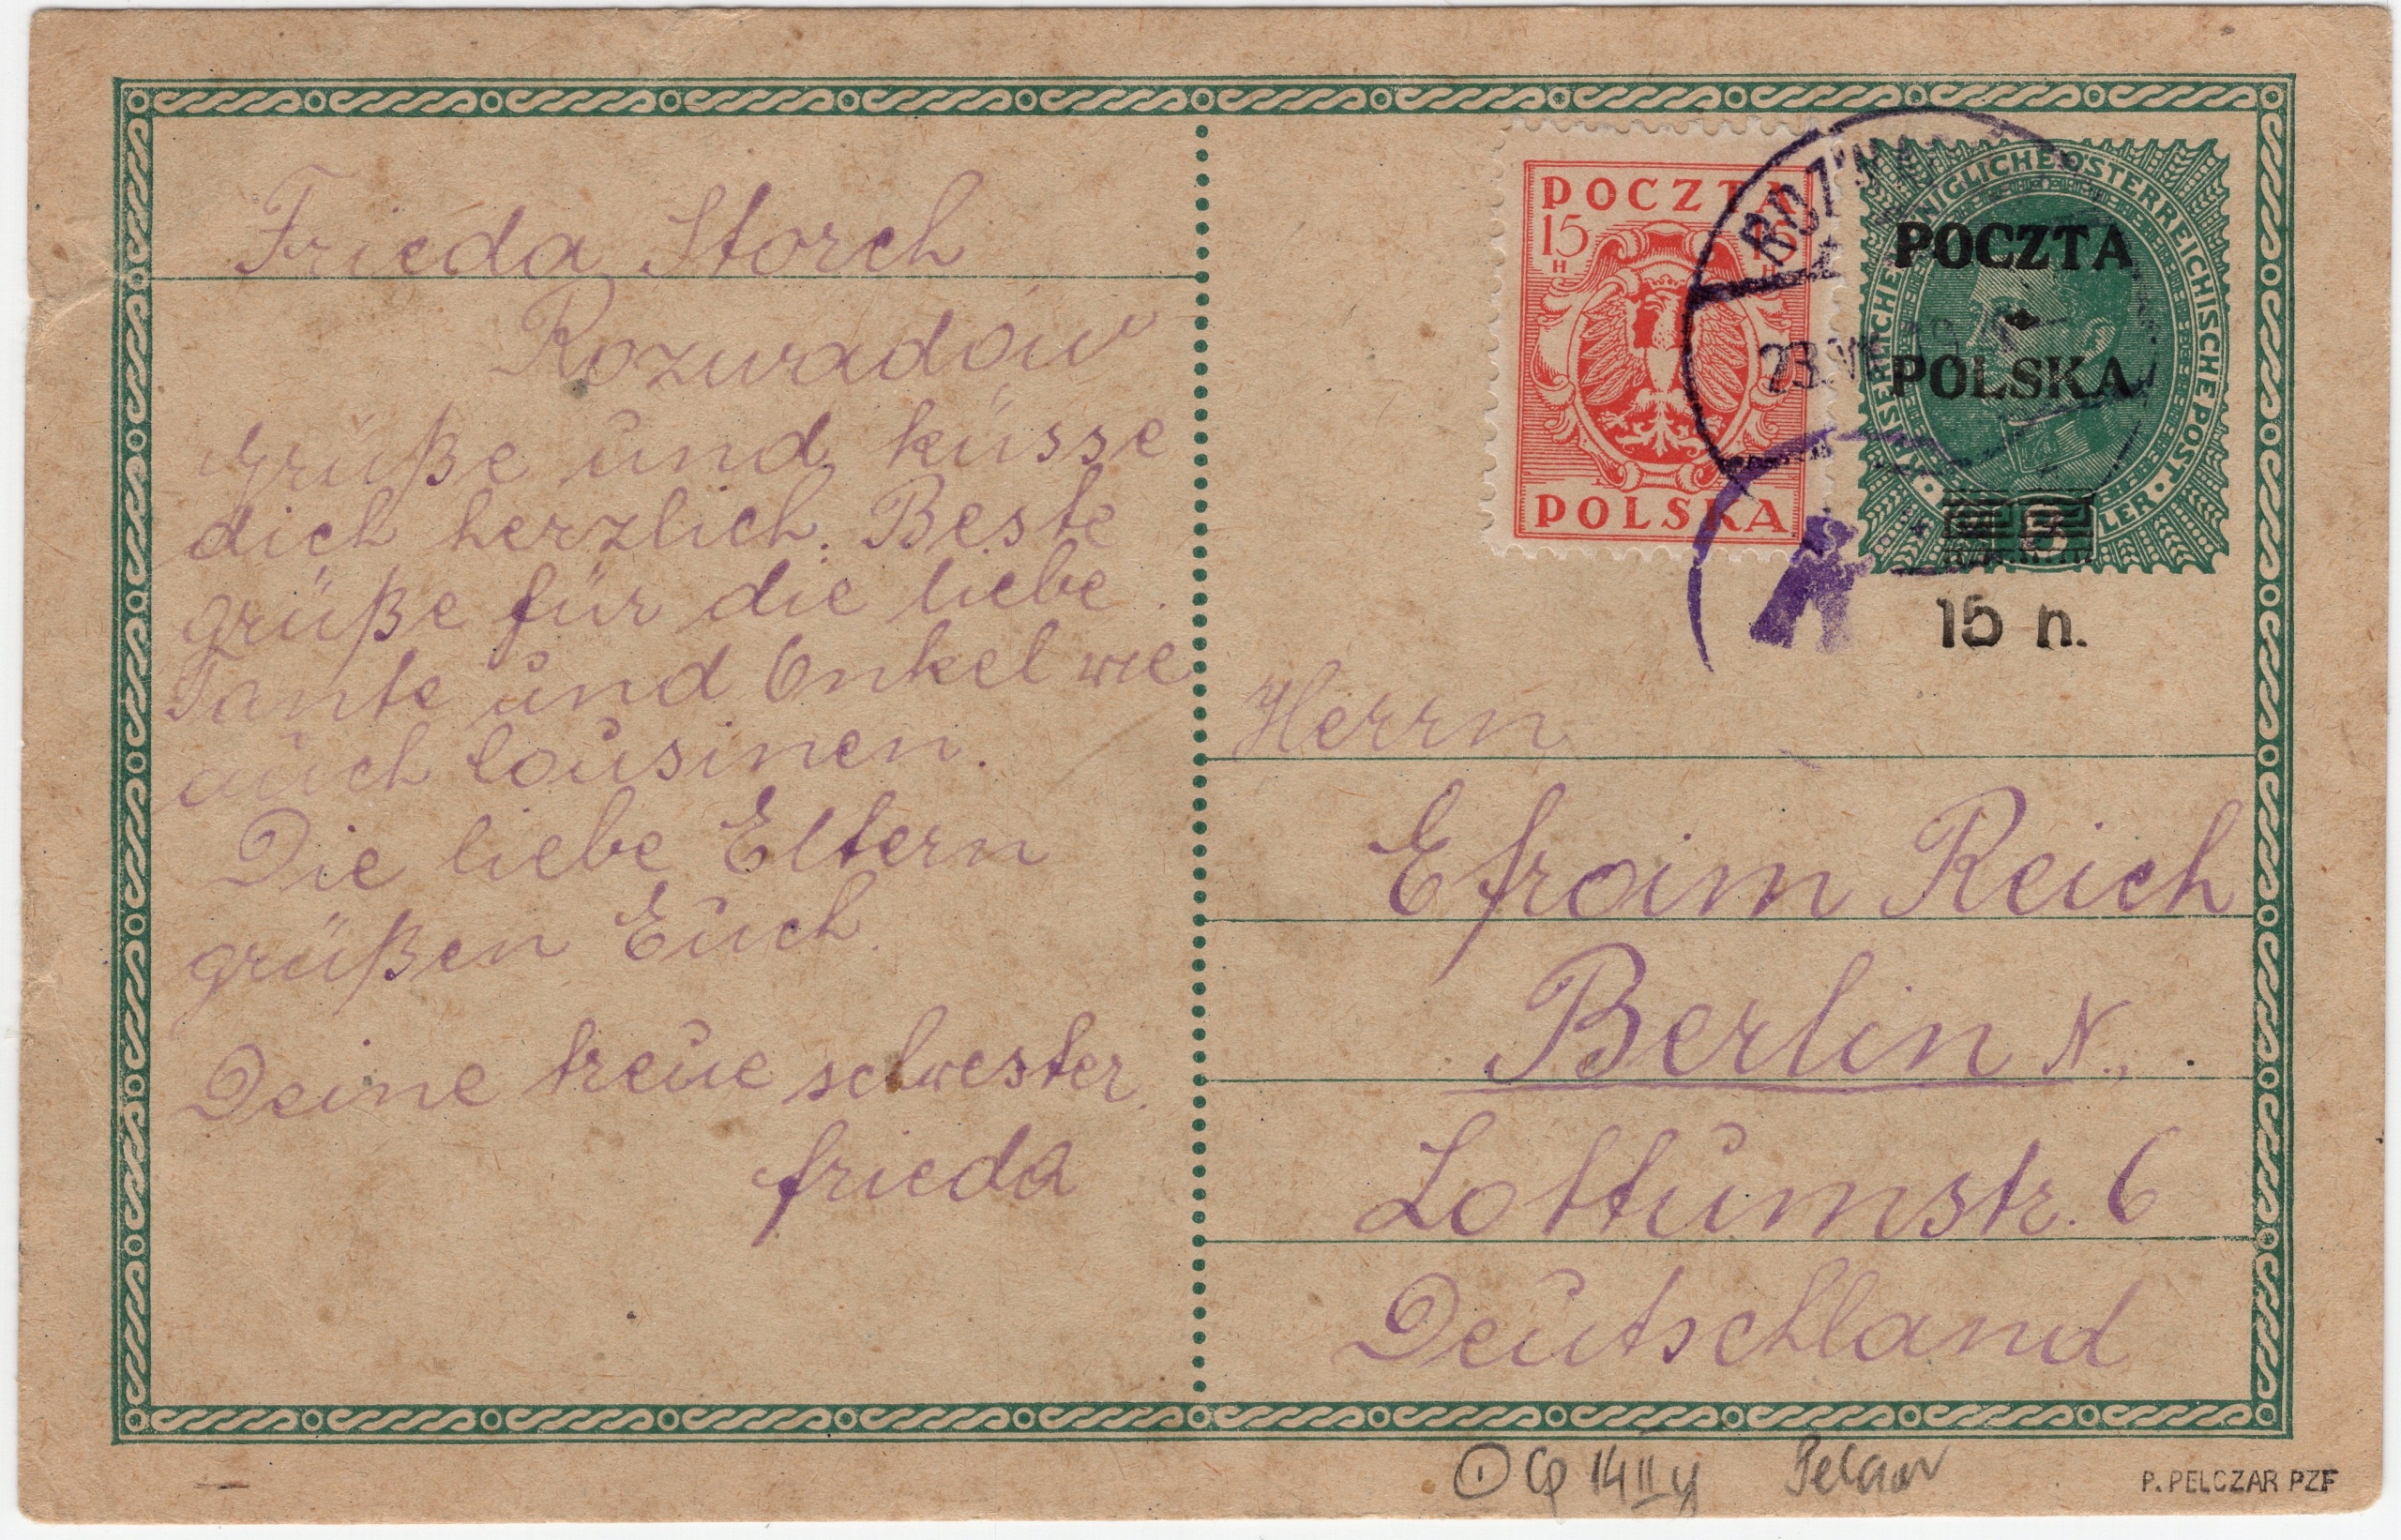 Frieda Storch
Rozwadów
Grüße und küsse
dich herzlich. Beste
grüße für die liebe
Tante und Onkel wie
auch Cousinen.
Die liebe Eltern
grüßen Euch.
Deine treue schwester
frieda
POCZTA
15 15
H H
POLSKA
KAISERLICHE KÖNIGLICHE ÖSTERREICHISCHE POST
POCZTA
POLSKA
15 h.
23.VII
Herrn
Efroim Reich
Berlin N.,
Lottumstr. 6
Deutschland
1 Cp 14 II y
P. PELCZAR PZF